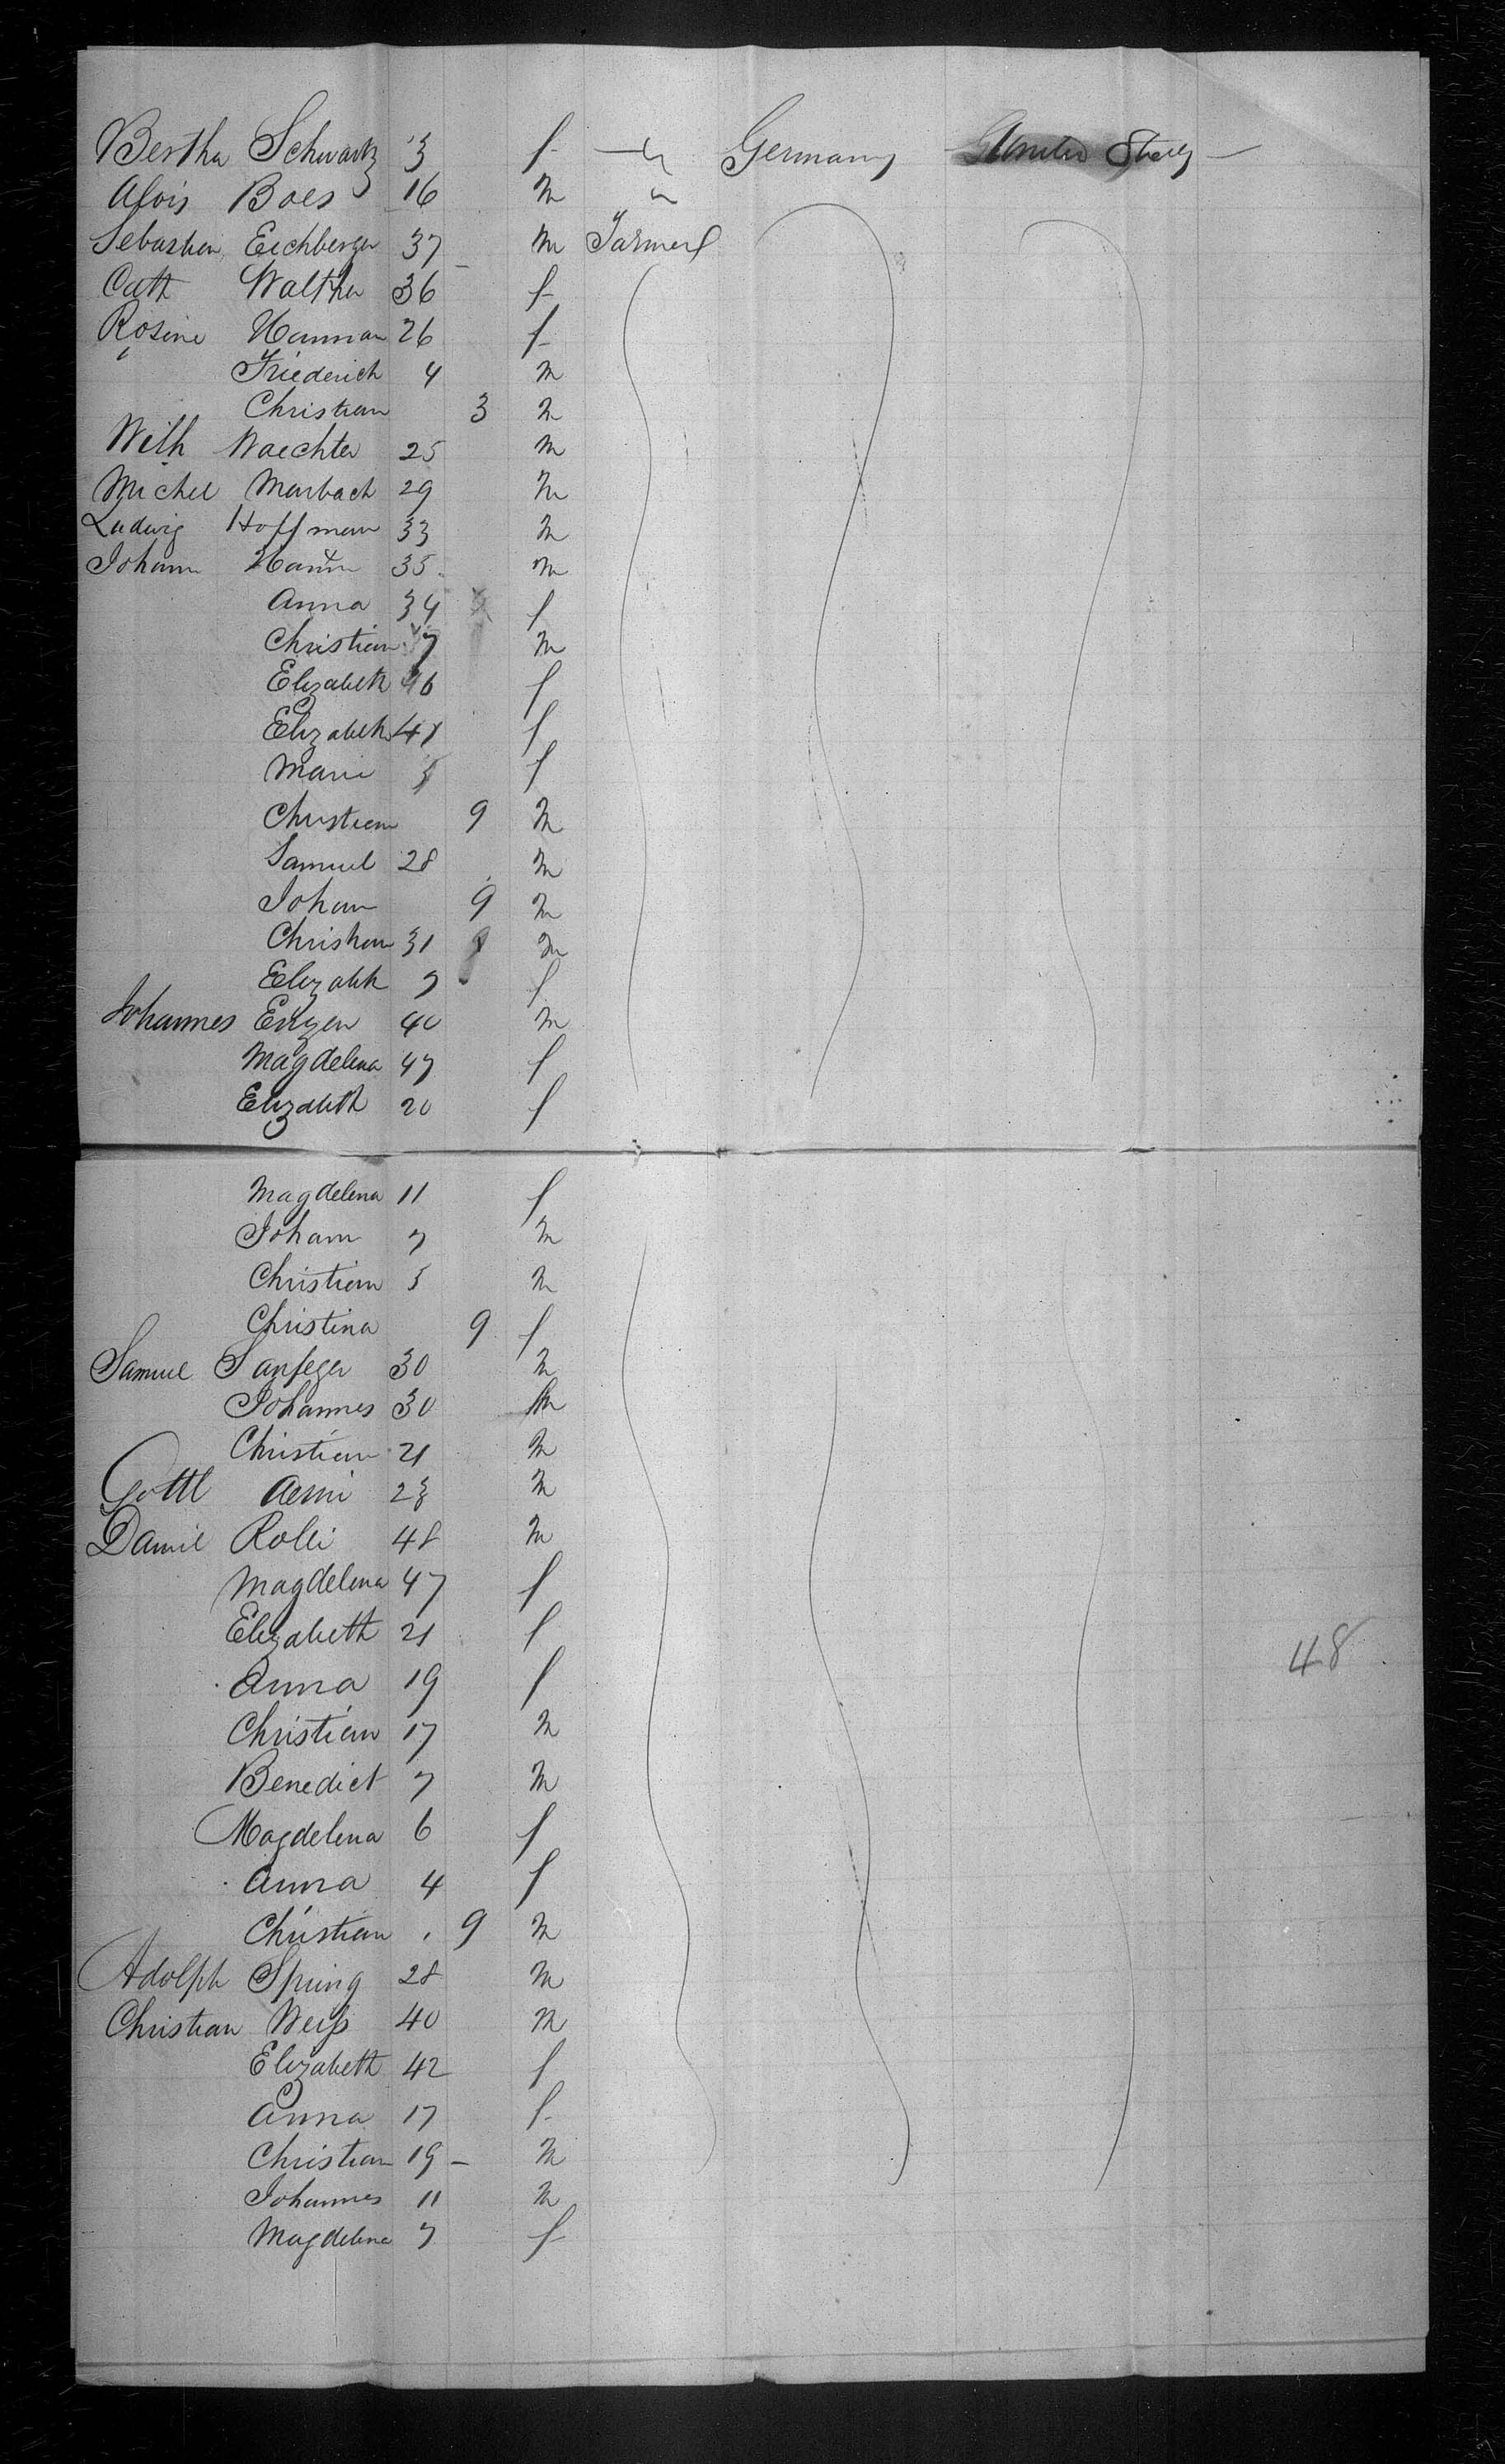 Bertha Schwartz 3 f - " Germany United States -
Alois Boes 16 m "
Sebastian Eichberger 37 - m Farmer
Cath Walther 36 f
Rosine Hamman 26 f
Friederich 4 m
Christian 3 m
Wilh Waechter 25 m
Michel Marbach 29 m
Ludwig Hoffman 33 m
Johann 35 m
Anna 34 f
Christian 7 m
Elizabeth f
Elizabeth f
Marie f
Christian 9 m
Samuel 28 m
Johan 9 m
Christian 31 m
Elizabth 7 f
Johannes 40 m
Magdelena 47 f
Elizabeth 20 f
Magdelena 11 f
Johann 7 m
Christian 5 m
Christina 9 f
Samuel 30 m
Johannes 30 m
Christian 21 m
Gottl Aerni 23 m
Daniel Rolli 48 m
Magdelena 47 f
Elizabeth 21 f
Anna 19 f
Christian 17 m
Benedict 7 m
Magdelena 6 f
Anna 4 f
Christian 9 m
Adolph Spring 28 m
Christian Weiss 40 m
Elizabeth 42 f
Anna 17 f
Christian 19 - m
Johannes 11 m
Magdelena 7 f
48